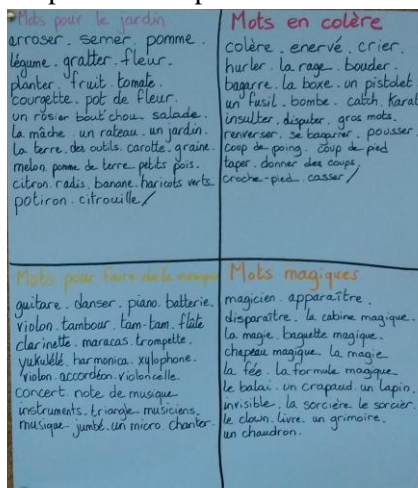 Mots pour le jardin
arroser. semer. pomme.
légume. gratter. fleur.
planter. fruit. tomate.
courgette. pot de fleur.
un rosier bout'chou salade.
la mâche. un rateau. un jardin.
la terre. des outils. carotte. graine.
melon. pomme de terre petits pois.
citron. radis. banane. haricots verts
potiron. citrouille/
Mots en colère
colère. enervé. crier.
hurler. la rage. bouder.
bagarre. la boxe. un pistolet
un fusil. bombe. catch. Karat
insulter. disputer. gros mots.
renverser. se bagarrer. pousser
coup de poing. coup de pied
taper. donner des coups.
croche-pied. casser/
Mots pour faire de la musique
guitare. danser. piano. batterie.
violon. tambour. tam-tam. flûte
clarinette. maracas. trompette.
yukulélé. harmonica. xylophone.
violon. accordéon. violoncelle.
concert. note de musique
instruments. triangle musiciens.
musique. jumbé. un micro. chanter.
Mots magiques
magicien. apparaître.
disparaître. la cabine magique.
la magie. baguette magique.
chapeau magique. la magie
la fée. la formule magique
le balai. un crapaud. un lapin.
invisible. la sorcière. le sorcier.
le clown. livre. un grimoire.
un chaudron.